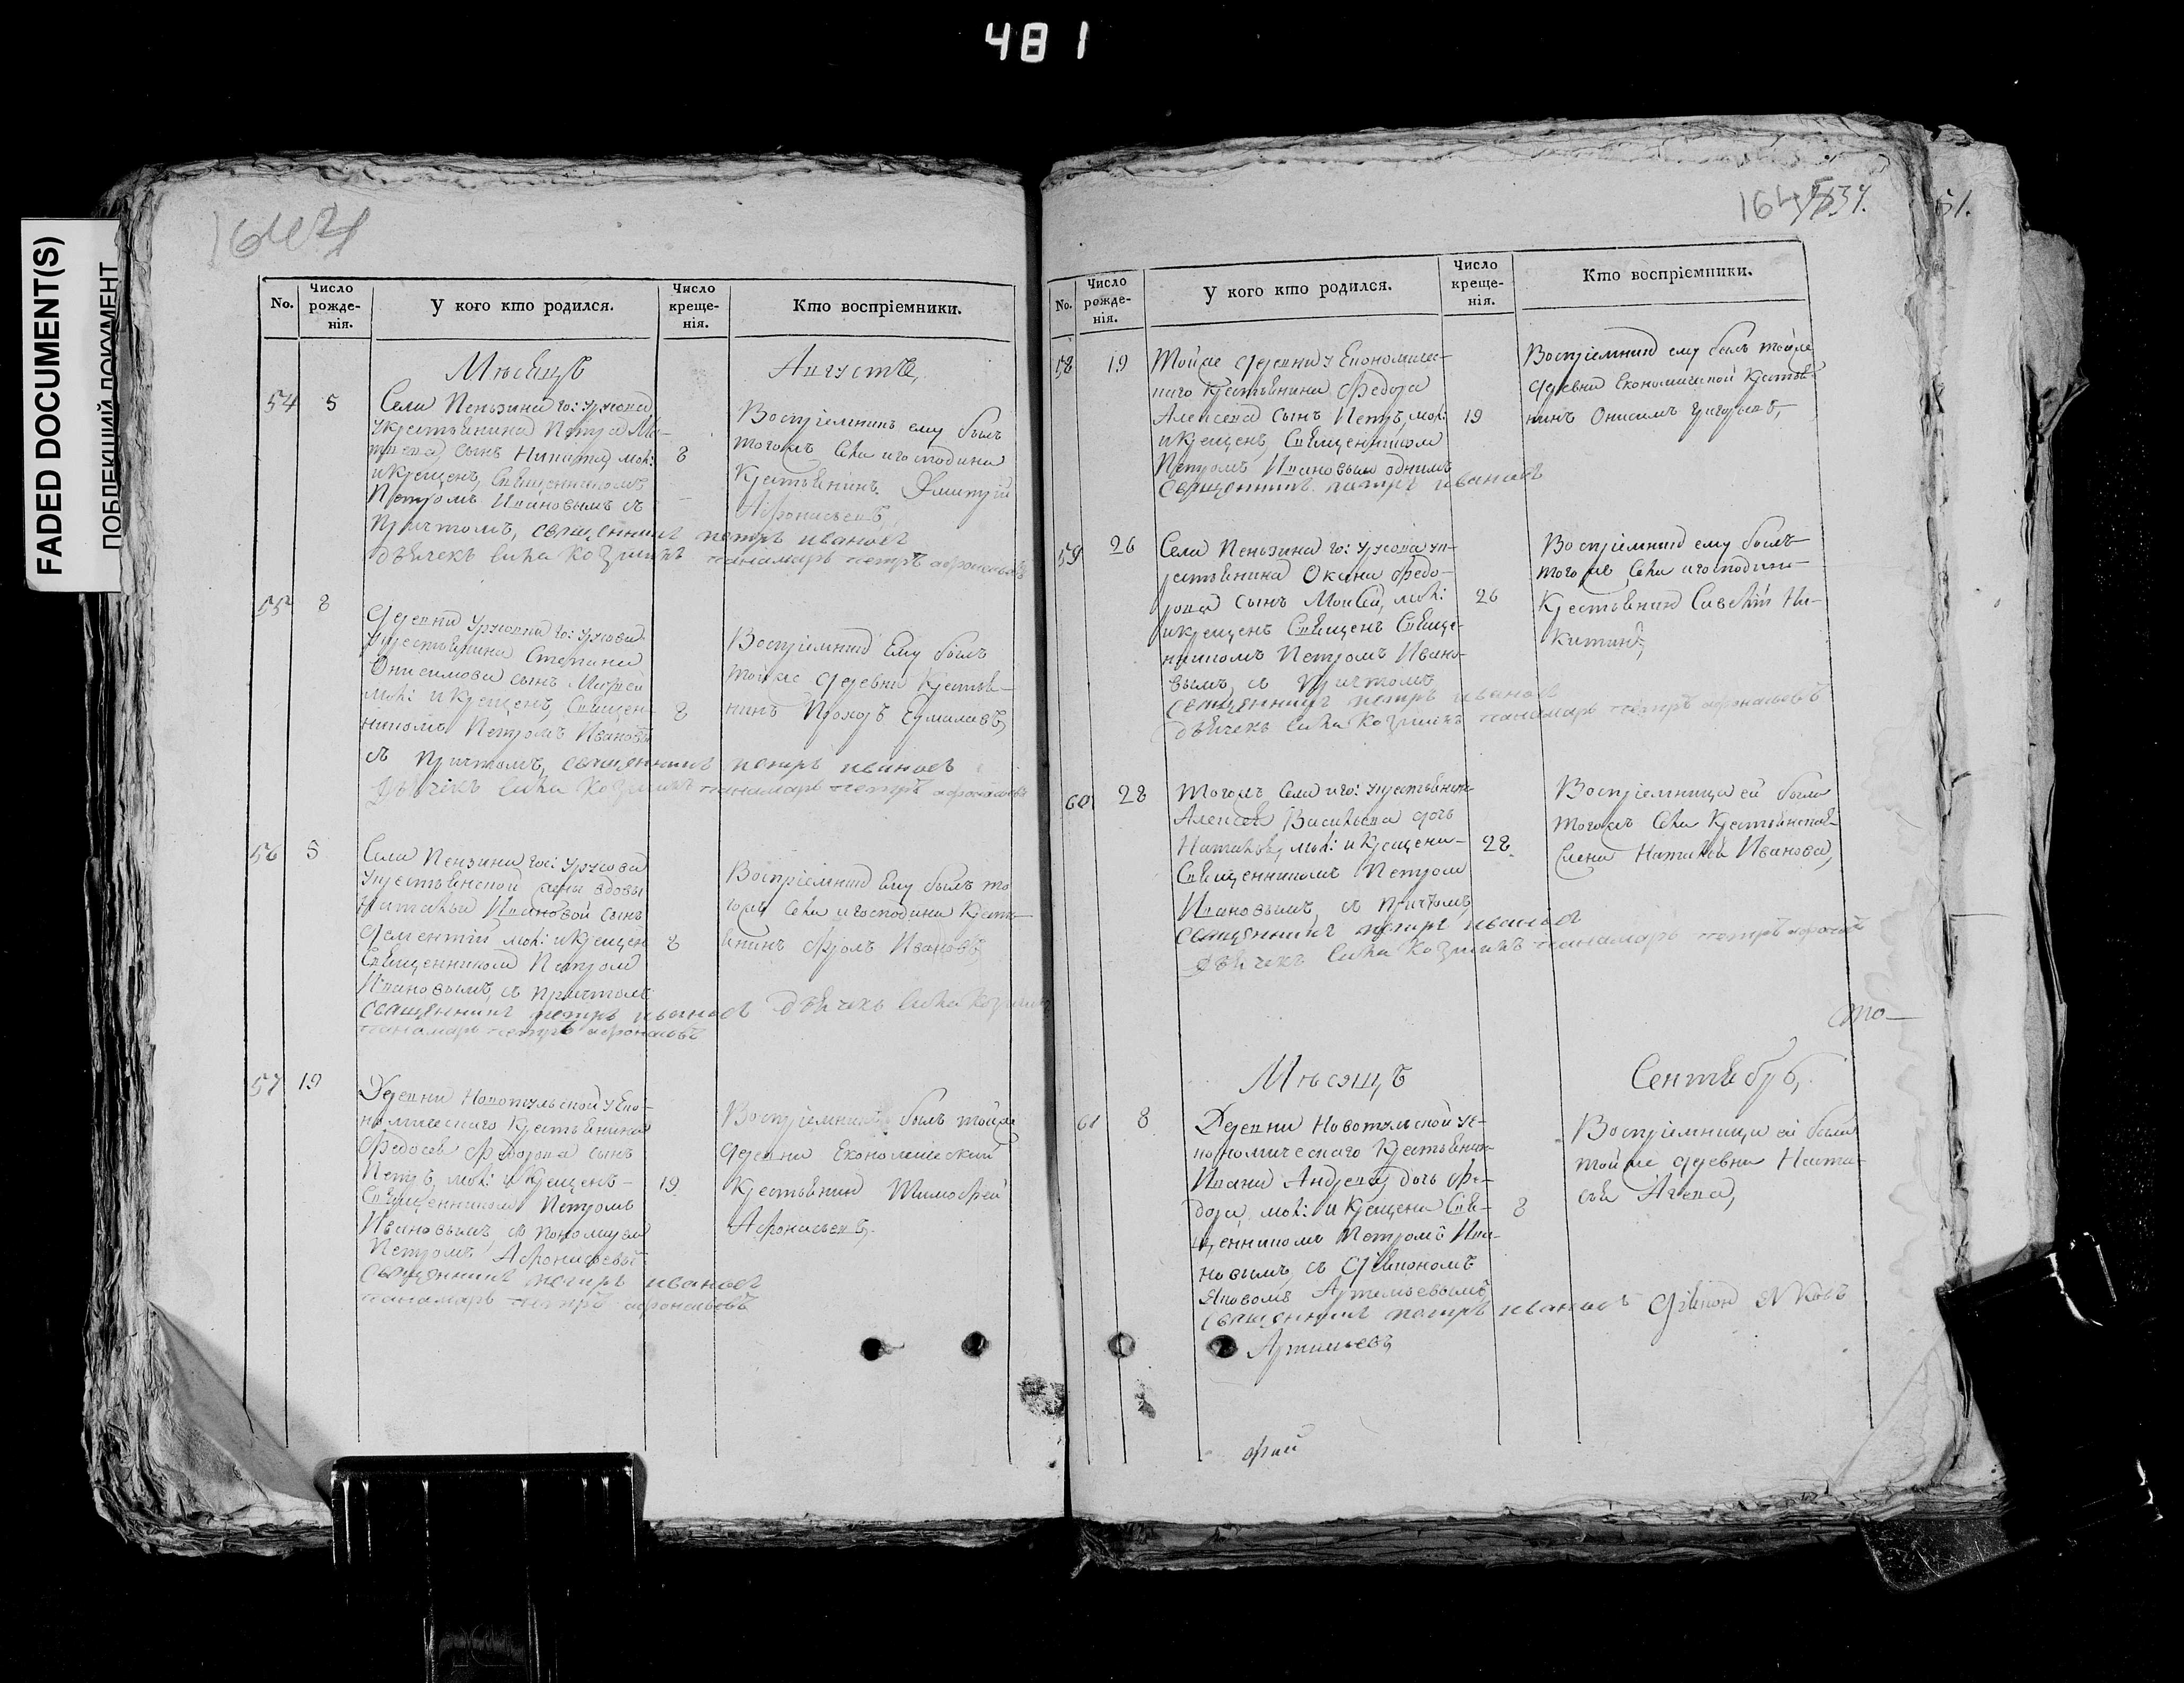 481
FADED DOCUMENT(S)
ПОБЛЕКШИЙ ДОКУМЕНТ
No.
Число рожде-нія.
У кого кто родился.
Число креще-нія.
Кто воспріемники.
Мѣсяцъ Августъ,
54 5
Села Пензина го: Урусова
у крестьянина Петра Ма-
сынъ Никита, мол: 8
и крещенъ, Священникомъ
Петромъ Ивановымъ съ
причтомъ, священникъ петръ ивановъ
дьячекъ сила козминъ панамарь петръ афонасьевъ
Воспріемникъ ему былъ
тогожъ села и господина
Крестьянинъ Дмитрій
Афонасьевъ,
55 8
Деревни Урусовки го: Урусова
у крестьянина Степана
Онисимова сынъ
мол: и крещенъ, Священ- 8
никомъ Петромъ Ивановы
съ причтомъ, священникъ петръ ивановъ
Дьячекъ сила козминъ панамарь петръ афонасьевъ
Воспріемникъ ему былъ
тойже деревни крестья-
нинъ Прохоръ Ермилавъ,
56 5
Села Пензина гос: Урусова
у крестьянской жены вдовы
Натальи Ивановой сынъ
Дементій мол: и крещен 8
Священникомъ Петром
Ивановымъ, съ причтомъ
священникъ петръ ивановъ дьячекъ сила козминъ
панамарь петръ афонасьевъ
Воспріемникъ ему былъ то
гожъ села и господина Крест-
янинъ Фролъ Ивановъ,
57 19
Деревни Новотульской у Еко-
номическаго Крестьянина
Федосея Федорова сынъ
Петръ, мол: и крещенъ- 19
Священникомъ Петромъ
Ивановымъ, съ пономарем
Петромъ Афонасьевы
священникъ петръ ивановъ
панамарь петръ афонасьевъ
Воспріемникъ былъ тойже
деревни Економической
Крестьянинъ Тимофей
Афонасьевъ,
No.
Число рожде-нія.
У кого кто родился.
Число креще-нія.
Кто воспріемники.
58 19
Тойже деревни у Економиче-
скаго крестьянина Федора
Алексеева сынъ Петръ, мол: 19
и крещенъ, Священникомъ
Петромъ Ивановым однимъ
священникъ петръ ивановъ
Воспріемникъ ему былъ тойже
деревни Економической Крестья-
нинъ Онисимъ Григорьевъ,
59 26
Села Пензина го: Урусова у к-
рестьянина Окима Федо-
рова сынъ Моисей, мол: 26
и крещенъ Священъ Священ-
никомъ Петромъ Ивано-
вымъ, съ причтомъ
священникъ петръ ивановъ
дьячекъ сила козминъ панамарь петръ афонасьевъ
Воспріемникъ ему былъ
тогоже села и господина
Крестьянинъ Савелій Ни-
китинъ,
60 28
Тогожъ села и го: у крестьянин
Алексея Васильева дочь
Наталья, мол: и крещена- 28
Священникомъ Петром
Ивановымъ, съ причтомъ,
священникъ петръ ивановъ
Дьячекъ сила козминъ панамарь петръ афонасьевъ
Воспріемница ей была
тогожъ села Крестьянская
жена Наталья Иванова,
то-
Мѣсяцъ Сентябрь,
61 8
Деревни Новотульской у е-
кономическаго крестьянин
Ивана Андреева дочь Фе-
дора, мол: и крещена Свя- 8
щенникомъ Петромъ Ива-
новымъ, съ дьякономъ
Яковомъ Артемьевымъ,
священникъ петръ ивановъ Дьякон Яковъ
Артемьевъ,
Воспріемница ей была
тойже деревни Наста-
сья Агеева,